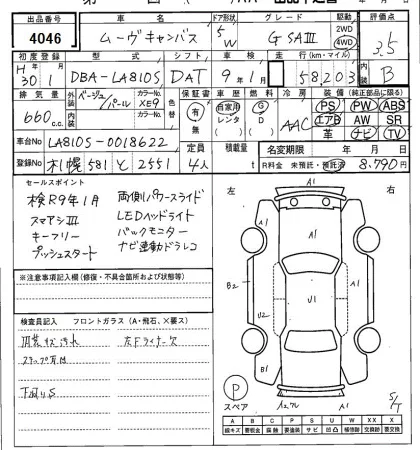 出品番号 車名 ドア形状 グレード 駆動 評価点
4046 ムーヴキャンバス 5W GSAⅢ 2WD 4WD 3.5
初度登録 型式 シフト 車検 走行(km・マイル) 内装
H30 1 DBA-LA810S DAT 9年1月 58,203 B
排気量 外装 ベージュ/パール カラーNo. XE9 色替 保証書 車歴 燃料 冷房 装備(純正部品に限る)
660c.c. 内装 カラーNo. 有 無 自家用 レンタ G D AAC PS PW ABS
エアB AW SR
革 ナビ TV
車台No LA810S-0018622 定員 積載量 名変期限 年 月 日
登録No 札幌 581 と 2551 4人 t R料金 未預託・預託済 8,790円
セールスポイント
検R9年1月 両側パワースライド
スマアシⅢ LEDヘッドライト
キーフリー バックモニター
プッシュスタート ナビ連動ドラレコ
※注意事項記入欄(修復・不具合箇所および状態等)
検査員記入 フロントガラス(A・飛石、×要ス)
内装キズ汚れ 左Fライナー欠
下回りS
左 右
A1
A1
B2
U2
U1
B1
A1
P
スペア
S/T
A 線キズ B 要板金 C 腐触 P 要塗装 S サビ U 凹凸 W 補修跡 X 要交換 XX 交換跡 X 要交換